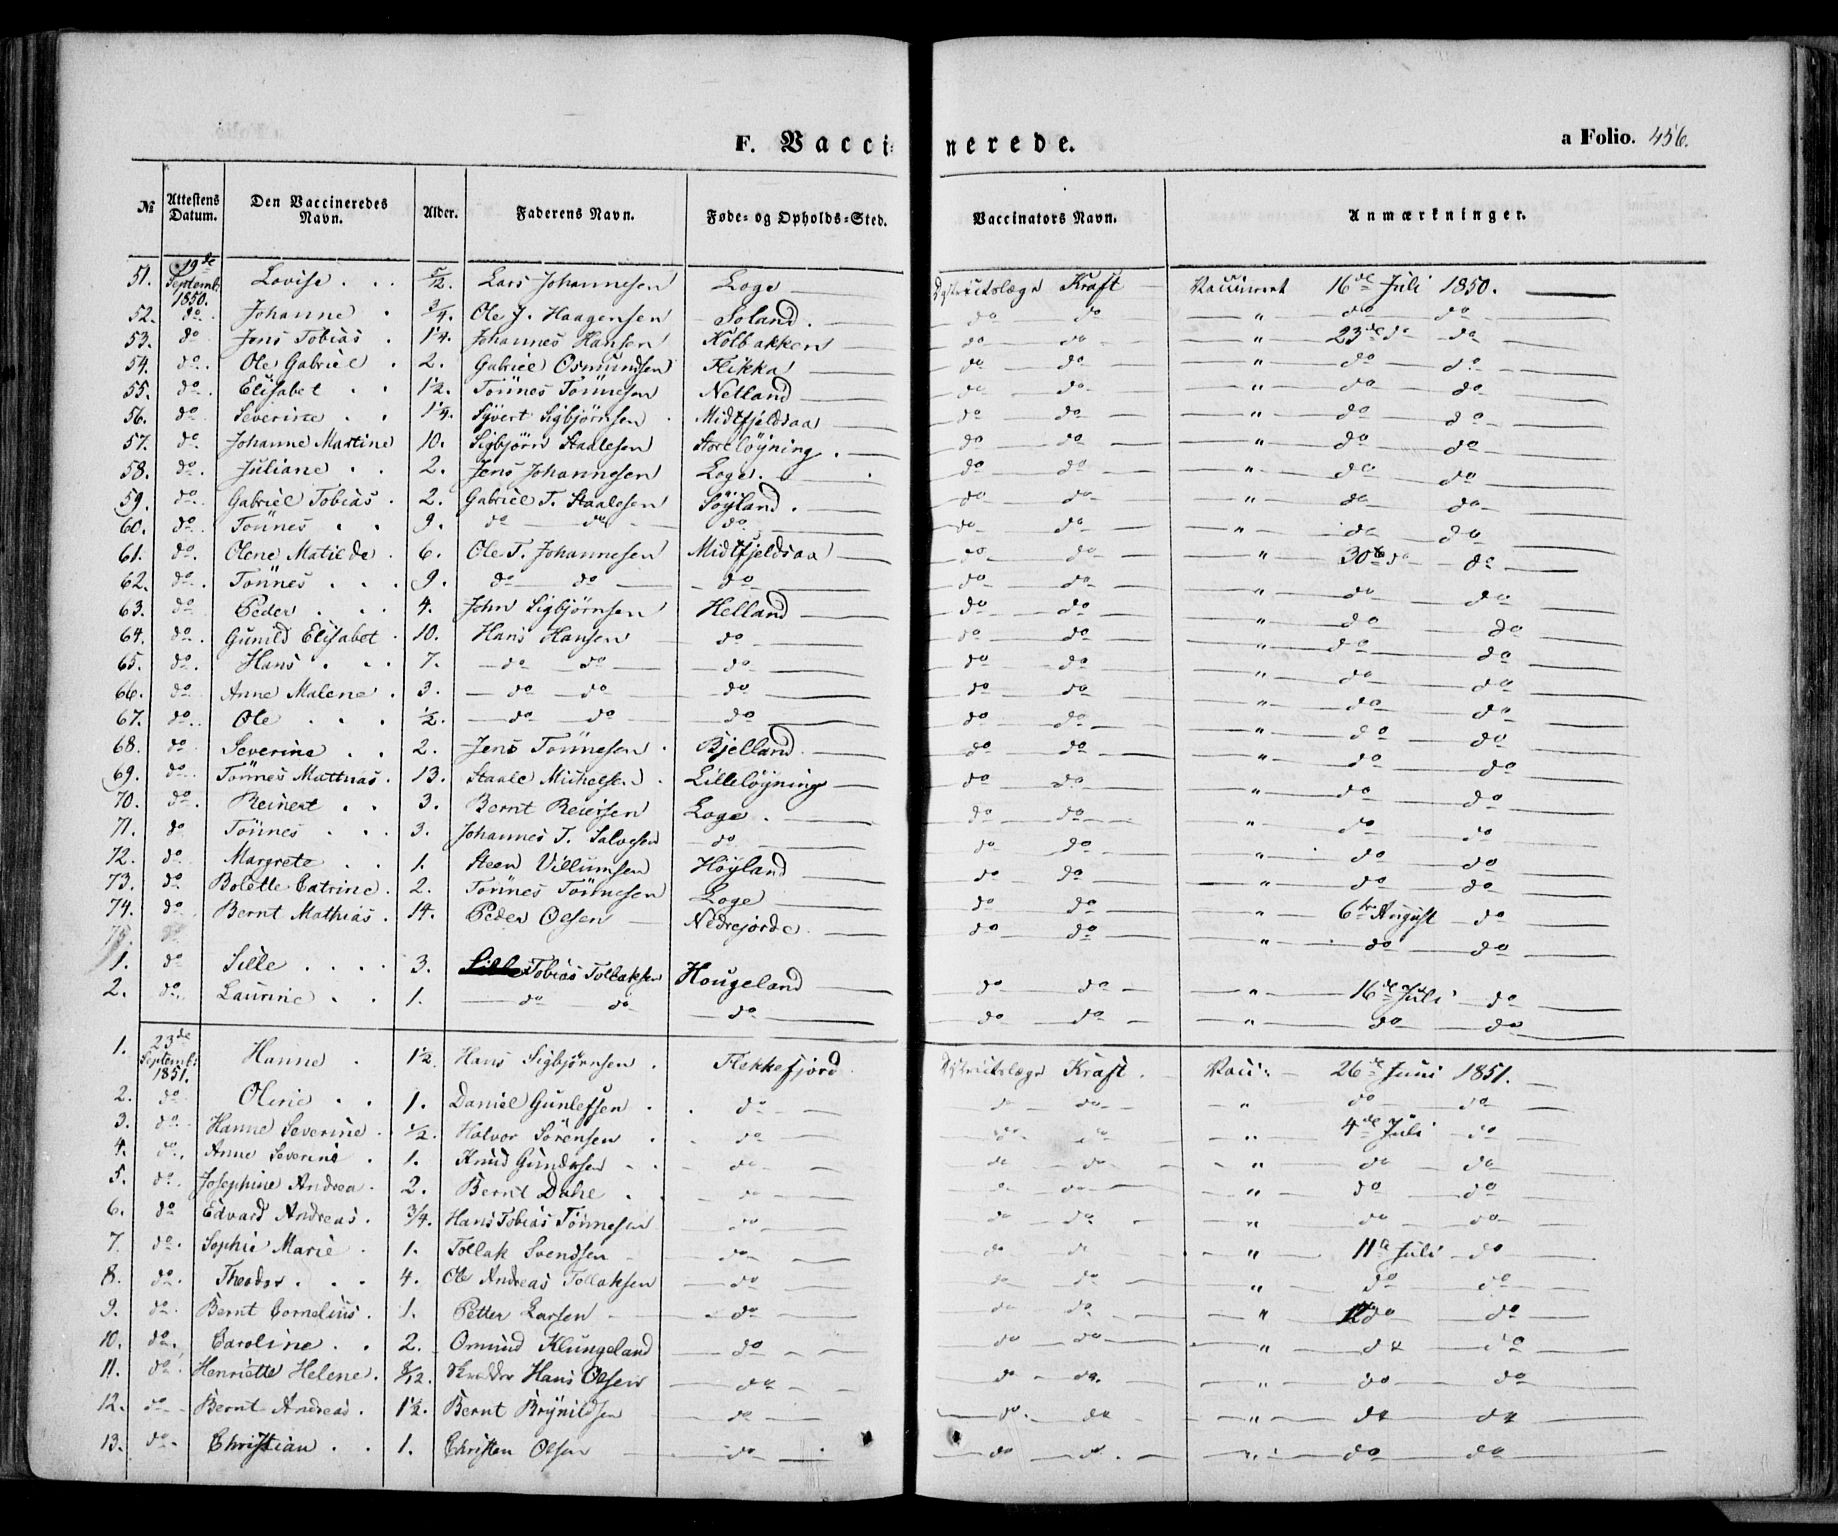 F. Vaccinerede.
a Folio. 456.
№ | Attestens Datum. | Den Vaccineredes Navn. | Alder. | Faderens Navn. | Føde- og Opholds-Sted. | Vaccinators Navn. | Anmærkninger.
51. | 19de Septemb: 1850. | Lovise | 5/12. | Lars Johannesen | Loge | Kraft | Vaccineret 16de Juli 1850.
52. | do. | Johanne | 3/4. | Ole J. Haagensen | Soland. | do do | " do do
53. | do | Jens Tobias | 1 1/4. | Johannes Hansen | Kolbakken | do do | " 23de do do
54. | do. | Ole Gabriel | 2. | Gabriel Osmundsen | Flikka | do do | " do do
55. | do. | Elisabet | 1 1/2. | Tönnes Tönnesen | Netland | do do | " do do
56. | do | Severine | 1 1/4. | Syvert Sigbjörnsen | Midtfjeldsaa | do do | " do do
57. | do. | Johanne Martine | 10. | Sigbjörn Staalesen | Storelöyning. | do do | " do do
58. | do. | Juliane | 2. | Jens Johannesen | Loge. | do do | " do do
59. | do. | Gabriel Tobias | 2. | Gabriel T. Staalesen | Söyland. | do do | " do do
60. | do. | Tönnes | 9. | do do | do | do do | " do do
61. | do. | Olene Matilde | 6. | Ole T. Johannesen | Midtfjeldsaa | do do | " 30te do do
62. | do. | Tönnes | 9. | do do | do | do do | " do do
63. | do | Peder | 4. | John Sigbjörnsen | Helland | do do | " do do
64. | do. | Gunild Elisabet | 10. | Hans Hansen | do | do do | " do do
65. | do. | Hans | 7. | do do | do | do do | " do do
66. | do | Anne Malene | 3. | do do | do | do do | " do do
67. | do. | Ole | 1/2. | do do | do | do do | " do do
68. | do | Severine | 2. | Jens Tönnesen | Bjelland. | do do | " do do
69. | do. | Tönnes Mattias | 13. | Staale Michelsen | Lillelöyning | do do | " do do
70. | do. | Reinert | 3. | Bernt Reiersen | Loge. | do do | " do do
71. | do | Tönnes | 3. | Johannes T. Salvesen | do | do do | " do do
72. | do. | Margrete | 1. | Steen Villumsen | Höyland | do do | " do do
73. | do. | Bolette Catrine | 2. | Tönnes Tönnesen | Loge | do do | " 6te August do
74. | do | Bernt Mathias | 14. | Peder Olsen | Nedrejorde | do do | " do do
75. | do
1. | do | Sille | 3. | Tobias Tollaksen | Hougeland | do do | " 16de Juli do
2. | do. | Laurine | 1. | do do | do | do do | " do do
1. | 23de Septemb: 1851. | Hanne | 1 1/2. | Hans Sigbjörnsen | Flekkefjord | Kraft. | Vacci: 26de Juni 1851.
2. | do. | Oline | 1. | Daniel Gunlefsen | do | do do | " do do
3. | do. | Hanne Severine | 1/2. | Halvor Sörensen | do | do do | " 4de Juli do
4. | do. | Anne Severine | 1. | Knud Gundersen | do | do do | " do do
5. | do. | Josephine Andrea | 2. | Bernt Dahl | do | do do | " do do
6. | do | Edvard Andreas | 3/4. | Hans Tobias Tönnesen | do | do do | " do do
7. | do. | Sophie Marie | 1. | Tollak Svendsen | do | do do | " 11te Juli do
8. | do. | Theodor | 4. | Ole Andreas Tollaksen | do | do do | " do do
9. | do. | Bernt Cornelius | 1. | Petter Larsen | do | do do | " do do
10. | do. | Caroline | 2. | Omund Klungeland | do | do do | " do do
11. | do | Henriette Helene | /12. | Hans Olsen | do | do do. | " do do
12. | do | Bernt Andreas | 1 1/2. | Bernt Brynildsen | do | do. do | " do do
13. | do. | Christian | 1. | Christen Olsen | do | do do | " do do